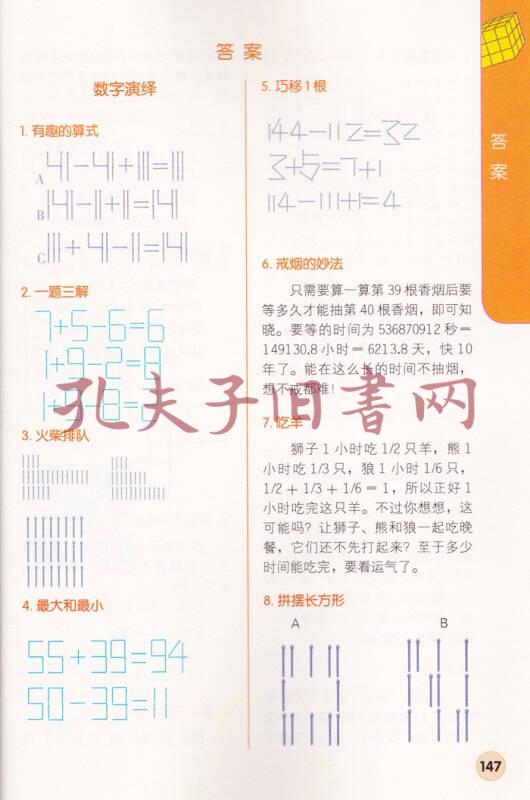 答案
数字演绎
1. 有趣的算式
A 41-41+111=111
B 141-11+11=141
C 111+41-11=141
2. 一题三解
7+5-6=6
1+9-2=8
3. 火柴排队
4. 最大和最小
55+39=94
50-39=11
5. 巧移1根
144-112=32
3+5=7+1
114-111+1=4
6. 戒烟的妙法
只需要算一算第 39 根香烟后要
等多久才能抽第 40 根香烟，即可知
晓。要等的时间为 536870912 秒＝
149130.8 小时＝ 6213.8 天，快 10
年了。能在这么长的时间不抽烟，
想不戒都难！
7. 吃羊
狮子 1 小时吃 1/2 只羊，熊 1
小时吃 1/3 只，狼 1 小时 1/6 只，
1/2 + 1/3 + 1/6 ＝ 1，所以正好 1
小时吃完这只羊。不过你想想，这
可能吗？让狮子、熊和狼一起吃晚
餐，它们还不先打起来？至于多少
时间能吃完，要看运气了。
8. 拼摆长方形
A B
答案
147
孔夫子旧书网